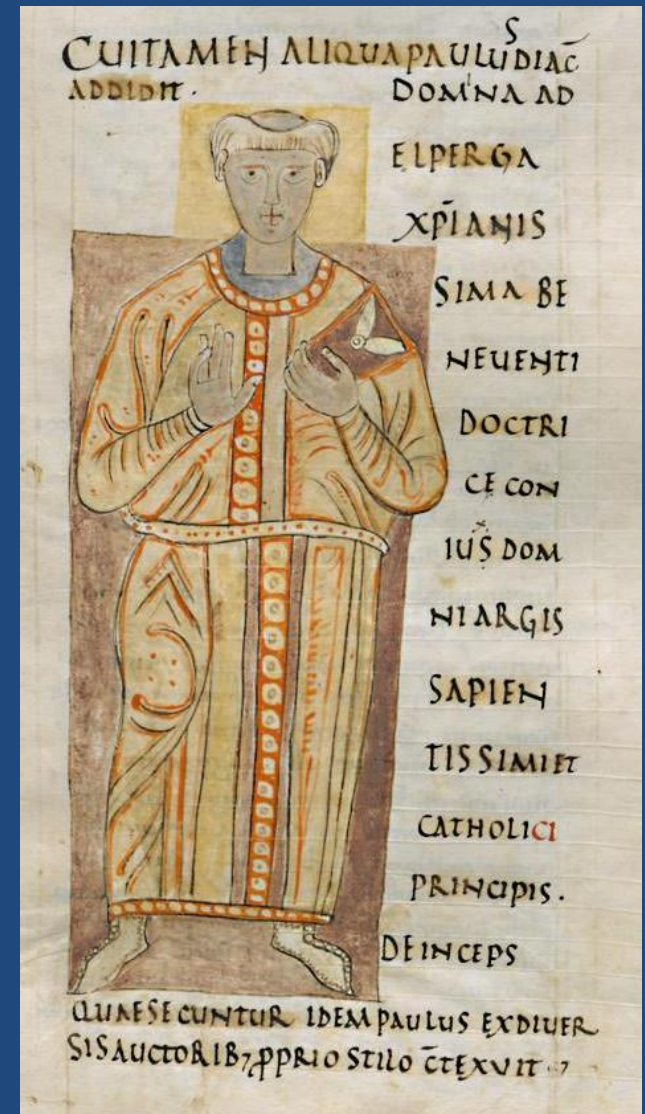 CUITAMEN ALIQUA PAULUS DIAC̄
ADDIDIT · DOMNA AD
ELPERGA
XP̄IANIS
SIMA BE
NEUENTI
DOCTRI
CE CON
IUXS DOM
NI ARGIS
SAPIEN
TISSIMI ET
CATHOLICI
PRINCIPIS.
DEINCEPS
QUAE SECUNTUR IDEM PAULUS EX DIUER
SIS AUCTORIB; ꝓPRIO STILO C̄TEXUIT